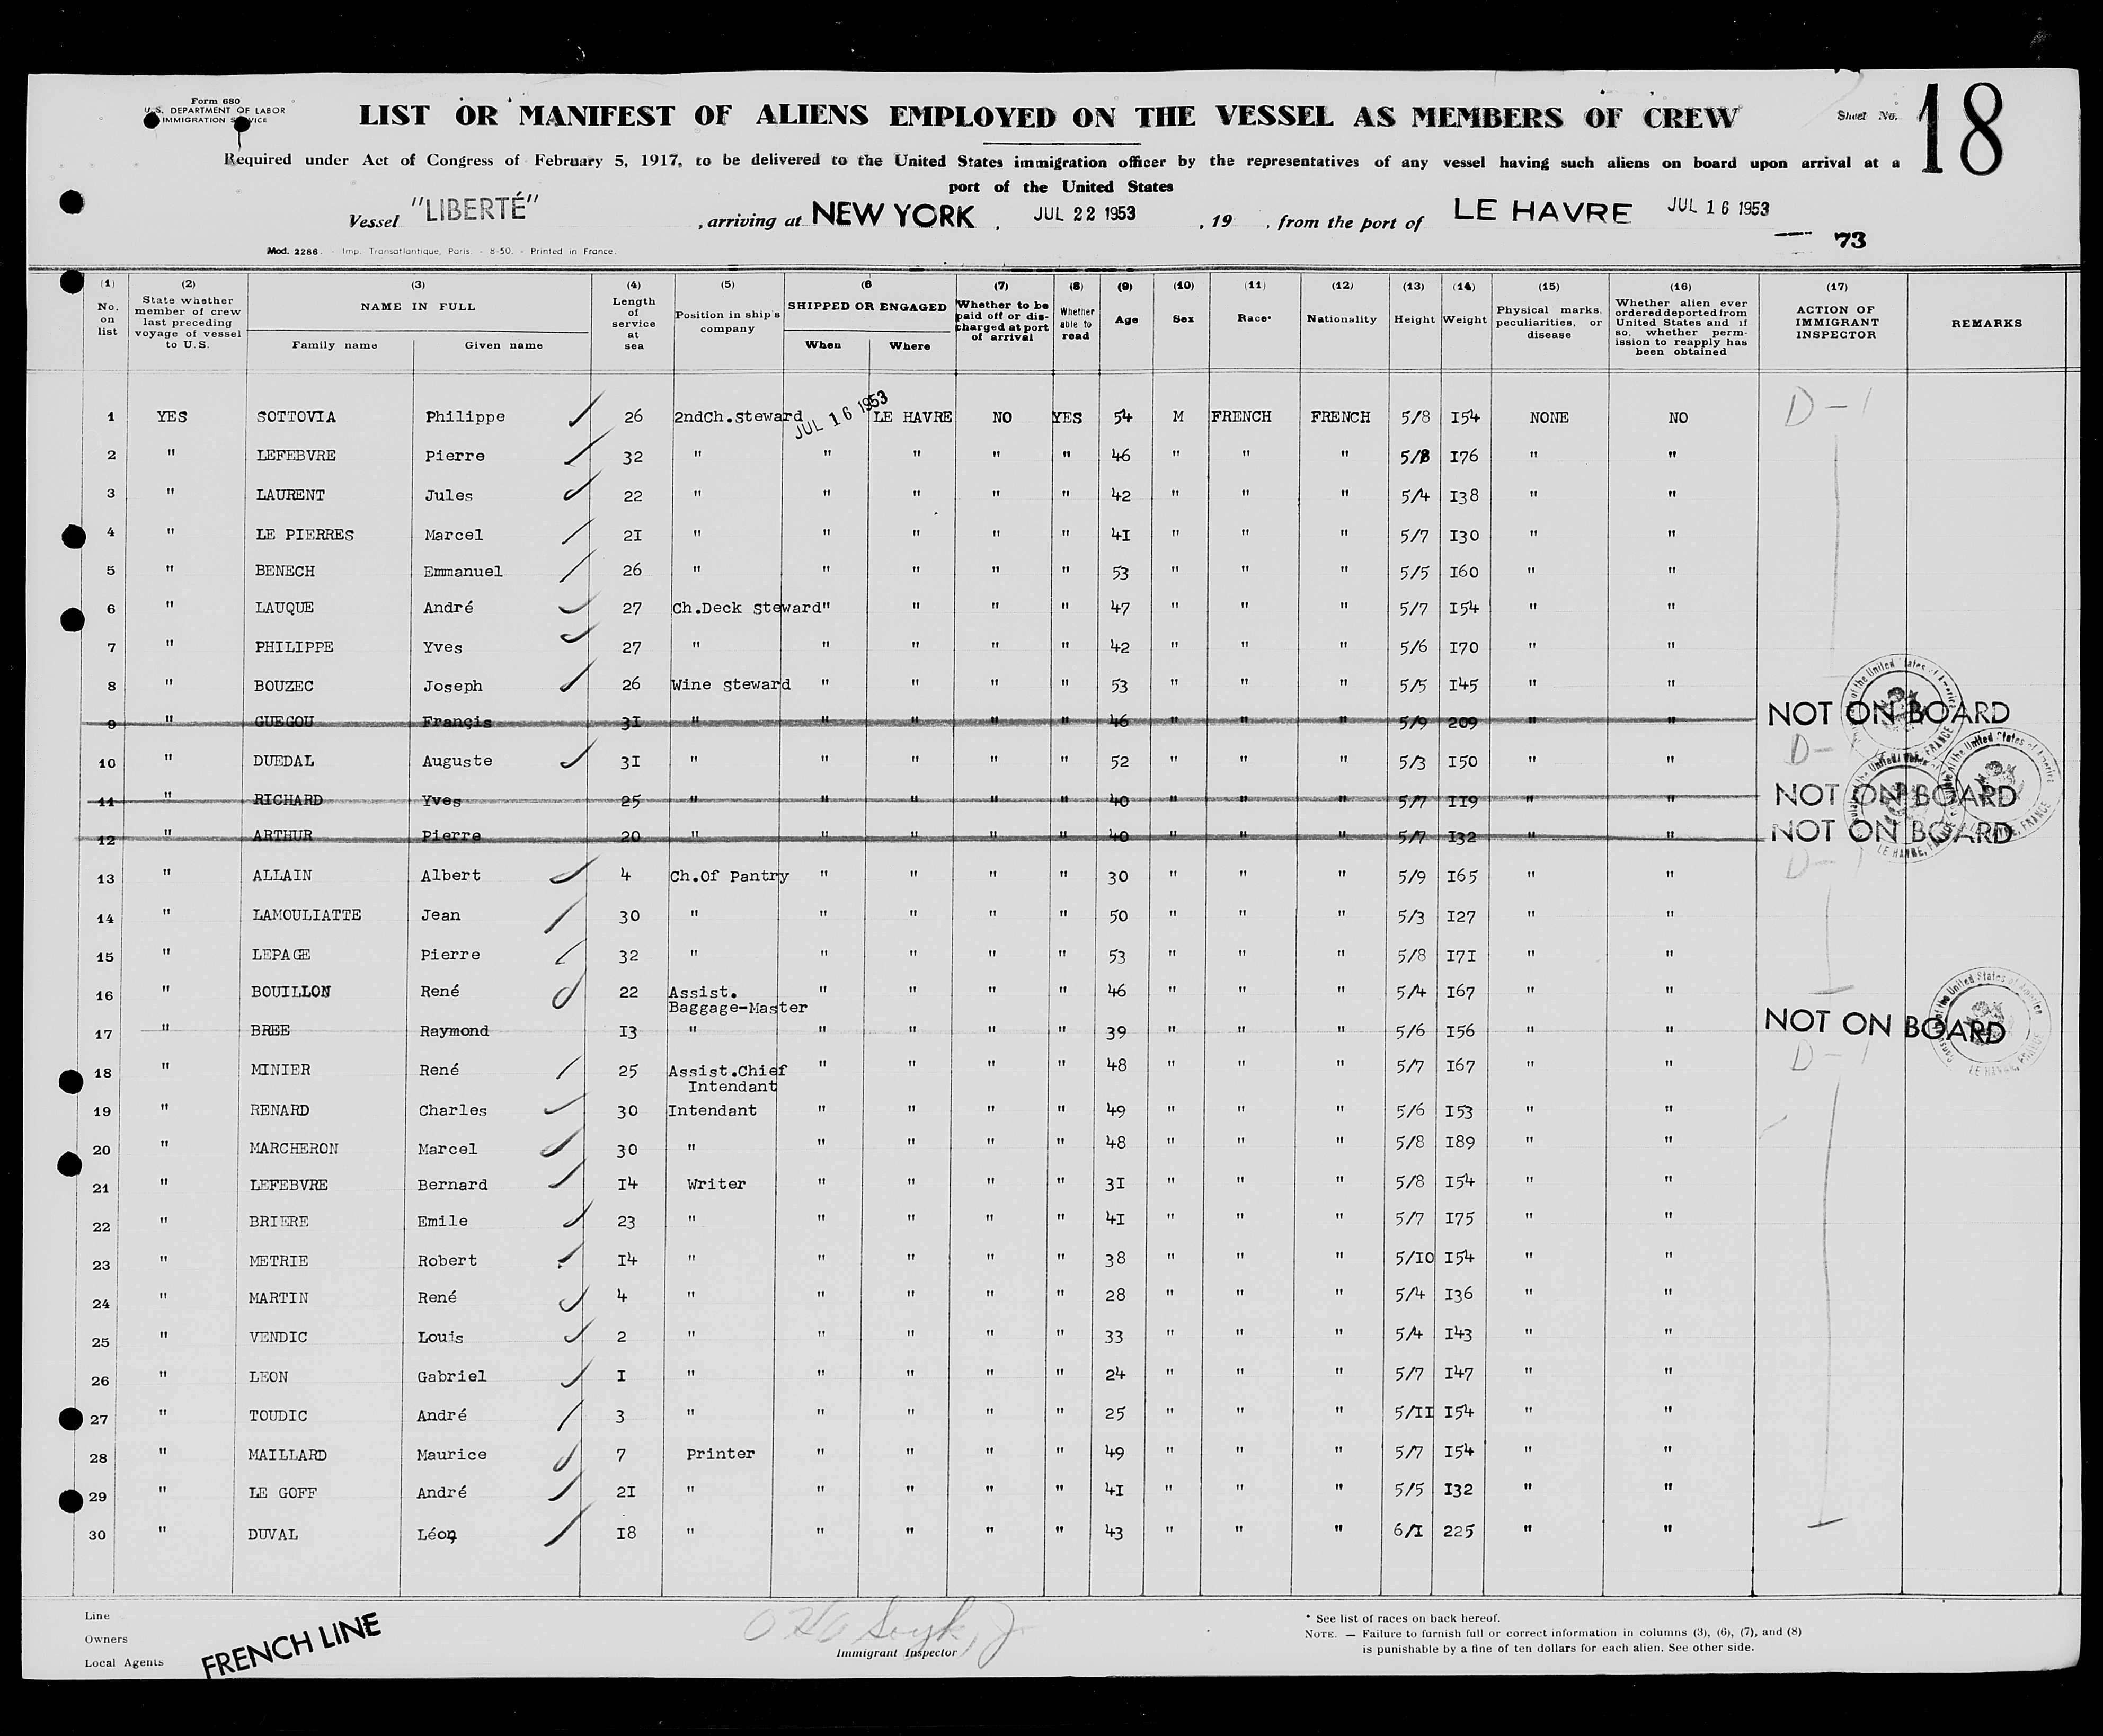 Form 680
U.S. DEPARTMENT OF LABOR
IMMIGRATION SERVICE
LIST OR MANIFEST OF ALIENS EMPLOYED ON THE VESSEL AS MEMBERS OF CREW
Sheet No. 18
Required under Act of Congress of February 5, 1917, to be delivered to the United States immigration officer by the representatives of any vessel having such aliens on board upon arrival at a
port of the United States
Vessel "LIBERTÉ" , arriving at NEW YORK , JUL 22 1953 , 19 , from the port of LE HAVRE JUL 16 1953
Mod. 2286. - Imp. Transatlantique, Paris. - 8-50. - Printed in France.
73
(1) No. on list (2) State whether member of crew last preceding voyage of vessel to U.S. (3) NAME IN FULL Family name Given name (4) Length of service at sea (5) Position in ship's company (6 SHIPPED OR ENGAGED When Where (7) Whether to be paid off or discharged at port of arrival (8) Whether able to read (9) Age (10) Sex (11) Race* (12) Nationality (13) Height (14) Weight (15) Physical marks, peculiarities, or disease (16) Whether alien ever ordered deported from United States and if so, whether permission to reapply has been obtained (17) ACTION OF IMMIGRANT INSPECTOR REMARKS
1 YES SOTTOVIA Philippe 26 2ndCh.steward JUL 16 1953 LE HAVRE NO YES 54 M FRENCH FRENCH 5/8 I54 NONE NO D-1
2 " LEFEBVRE Pierre 32 " " " " " 46 " " " 5/8 I76 " "
3 " LAURENT Jules 22 " " " " " 42 " " " 5/4 I38 " "
4 " LE PIERRES Marcel 2I " " " " " 4I " " " 5/7 I30 " "
5 " BENECH Emmanuel 26 " " " " " 53 " " " 5/5 I60 " "
6 " LAUQUE André 27 Ch.Deck steward" " " " 47 " " " 5/7 I54 " "
7 " PHILIPPE Yves 27 " " " " " 42 " " " 5/6 I70 " "
8 " BOUZEC Joseph 26 Wine steward " " " " 53 " " " 5/5 I45 " "
9 " GUEGOU Françis 3I " " " " " 46 " " " 5/9 209 " " NOT ON BOARD
10 " DUEDAL Auguste 3I " " " " " 52 " " " 5/3 I50 " " D-
11 " RICHARD Yves 25 " " " " " 40 " " " 5/7 II9 " " NOT ON BOARD
12 " ARTHUR Pierre 20 " " " " " 40 " " " 5/7 I32 " " NOT ON BOARD
13 " ALLAIN Albert 4 Ch.Of Pantry " " " " 30 " " " 5/9 I65 " " D-1
14 " LAMOULIATTE Jean 30 " " " " " 50 " " " 5/3 I27 " "
15 " LEPAGE Pierre 32 " " " " " 53 " " " 5/8 I7I " "
16 " BOUILLON René 22 Assist. " " " " 46 " " " 5/4 I67 " "
Baggage-Master
17 " BREE Raymond I3 " " " " " 39 " " " 5/6 I56 " " NOT ON BOARD
18 " MINIER René 25 Assist.Chief " " " " 48 " " " 5/7 I67 " " D-1
Intendant
19 " RENARD Charles 30 Intendant " " " " 49 " " " 5/6 I53 " "
20 " MARCHERON Marcel 30 " " " " " 48 " " " 5/8 I89 " "
21 " LEFEBVRE Bernard I4 Writer " " " " 3I " " " 5/8 I54 " "
22 " BRIERE Emile 23 " " " " " 4I " " " 5/7 I75 " "
23 " METRIE Robert I4 " " " " " 38 " " " 5/I0 I54 " "
24 " MARTIN René 4 " " " " " 28 " " " 5/4 I36 " "
25 " VENDIC Louis 2 " " " " " 33 " " " 5/4 I43 " "
26 " LEON Gabriel I " " " " " 24 " " " 5/7 I47 " "
27 " TOUDIC André 3 " " " " " 25 " " " 5/II I54 " "
28 " MAILLARD Maurice 7 Printer " " " " 49 " " " 5/7 I54 " "
29 " LE GOFF André 2I " " " " " 4I " " " 5/5 I32 " "
30 " DUVAL Léon I8 " " " " " 43 " " " 6/I 225 " "
Line
Owners
Local Agents
FRENCH LINE
Immigrant Inspector
* See list of races on back hereof.
NOTE. — Failure to furnish full or correct information in columns (3), (6), (7), and (8)
is punishable by a fine of ten dollars for each alien. See other side.